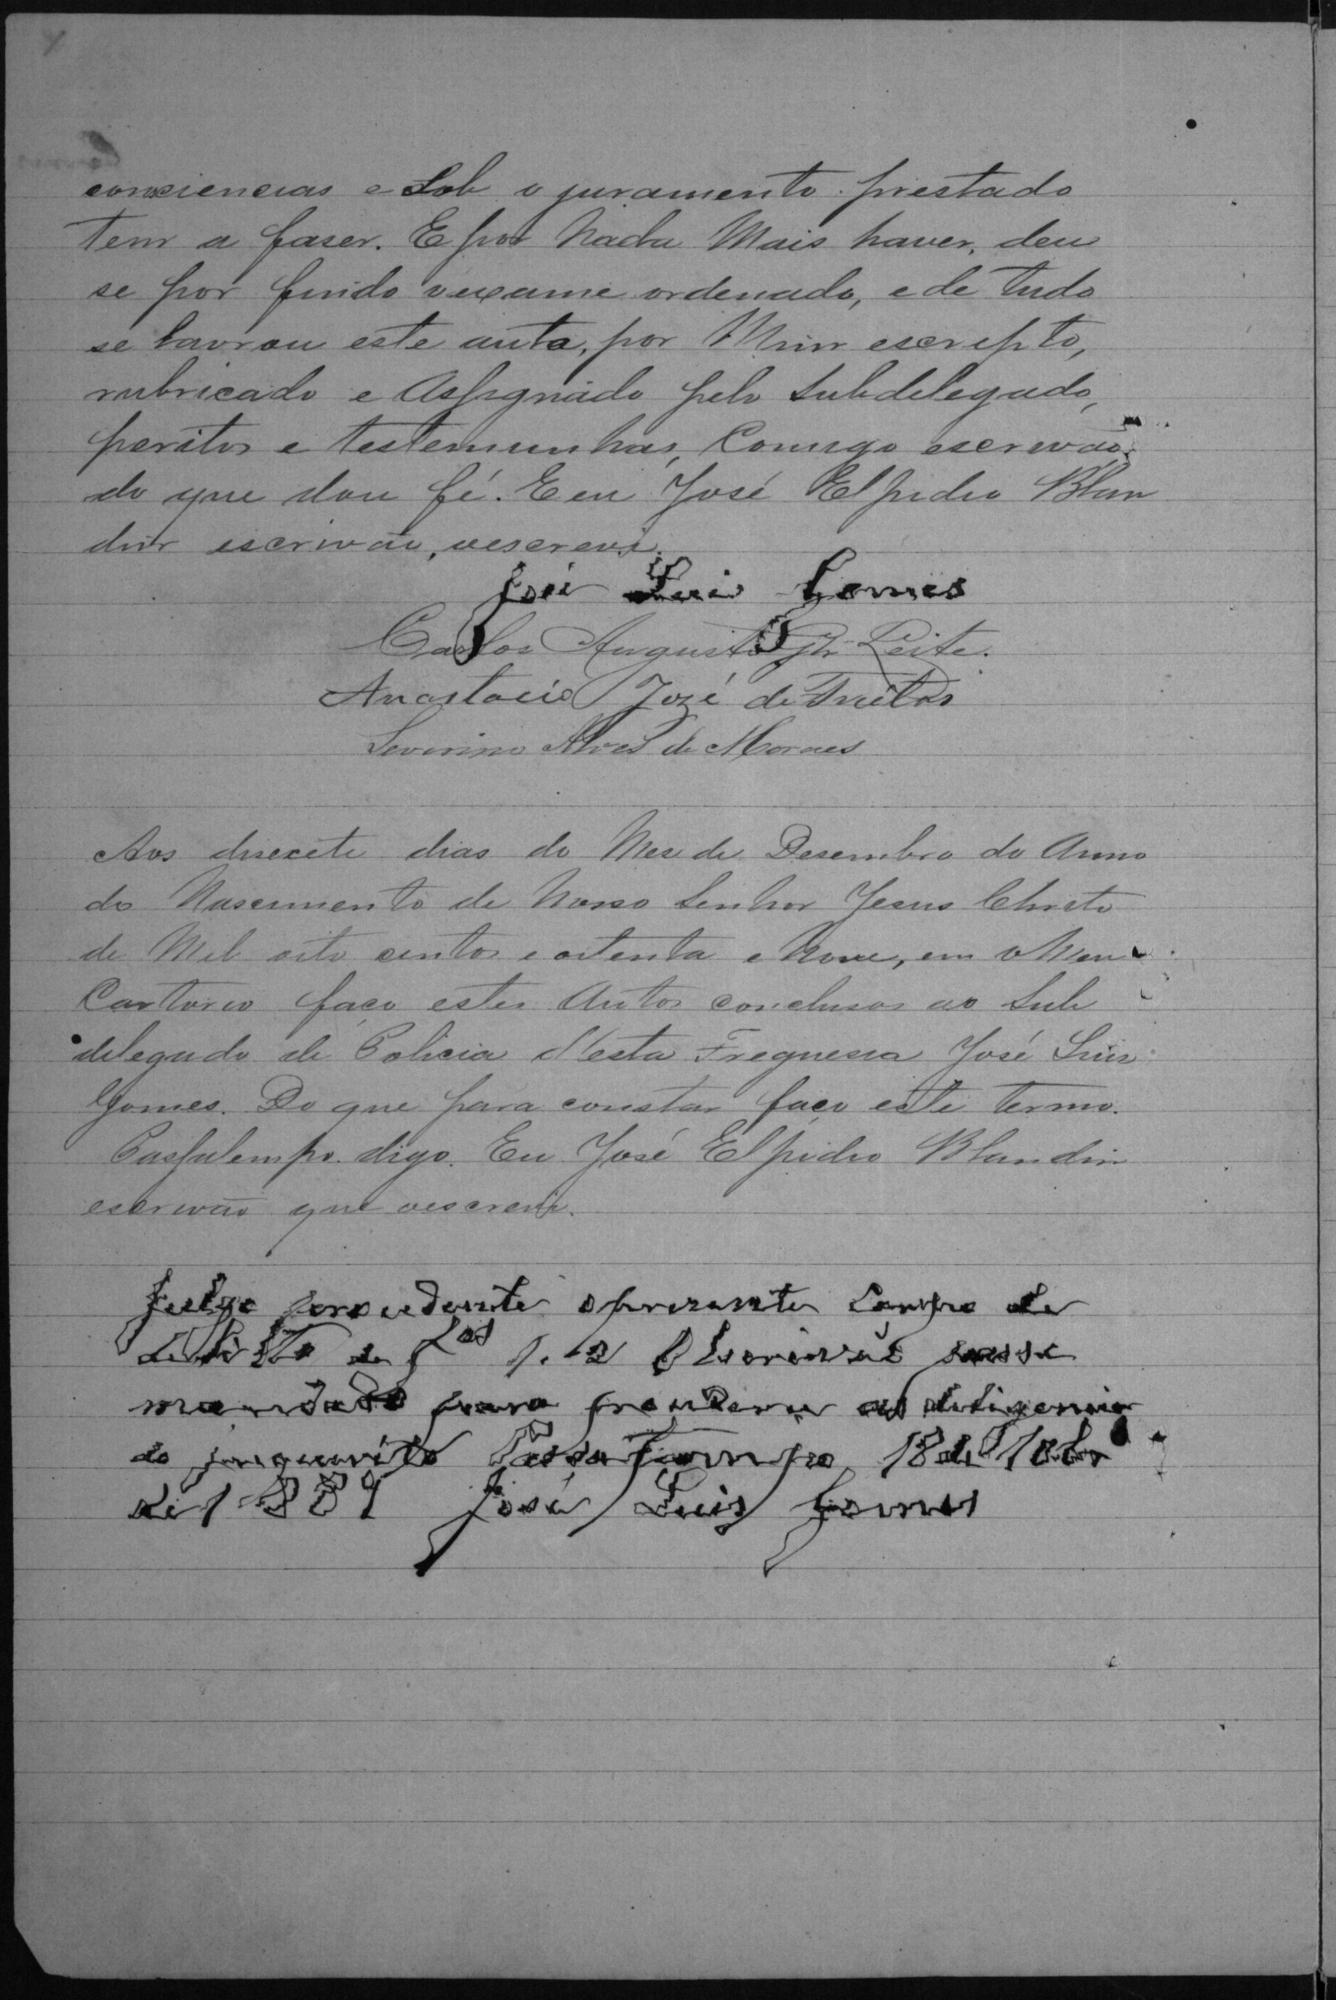 consciencias e Sob o juramento prestado
tem a faser. E por Nada Mais haver, deu
se por findo o exame ordenado, e de tudo
se lavrou este auto, por Mim escripto,
rubricado e Assignado pelo Subdelegado,
peritos e testemunhas, Comigo escrivão,
do que dou fé. E eu José Elpidio Blan
din escrivão, o escrevi.
José Luis Gomes
Carlos Augusto Leite.
Anastacio José de Freitas
Severino Alves de Moraes
Aos desecete dias do Mes de Desembro do Anno
do Nascimento de Nosso Senhor Jesus Christo
de Mil oito centos e oitenta e Nove, em o Meu
Cartorio faço estes Autos conclusos ao Sub
delegado de Policia desta Freguesia José Luis
Gomes. Do que para constar faço este termo.
Passatempo digo. Eu José Elpidio Blandin
escrivão que o escrevi.
Julgo procedente o presente Corpo de
delicto de f.as 1. a 2 O Escrivão passe
mandado para prender as deligencias
do inquerito Passa Tempo 18 de 10br
de 1889 José Luis Gomes